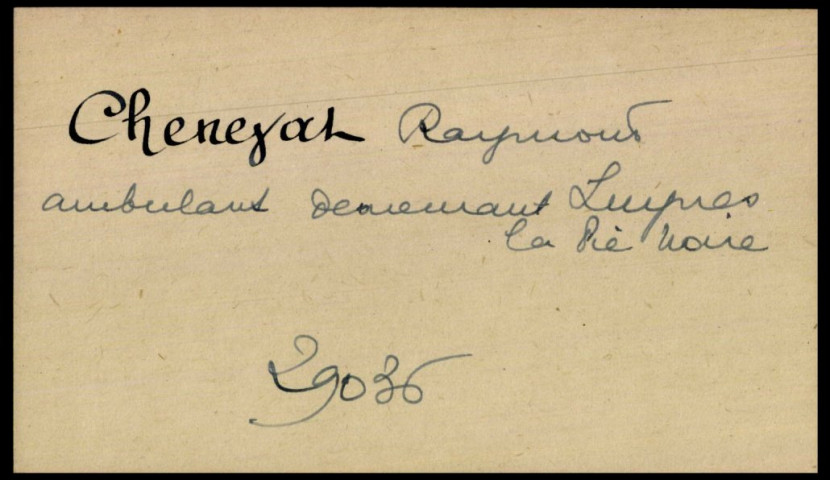 Cheneval Raymond
ambulant demeurant
la Pie Noire
29036